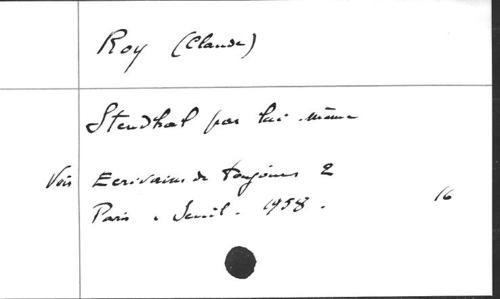 Roy (Claude)
Stendhal par lui-même
Voir Ecrivains de toujours 2
Paris. Seuil. 1958. 16